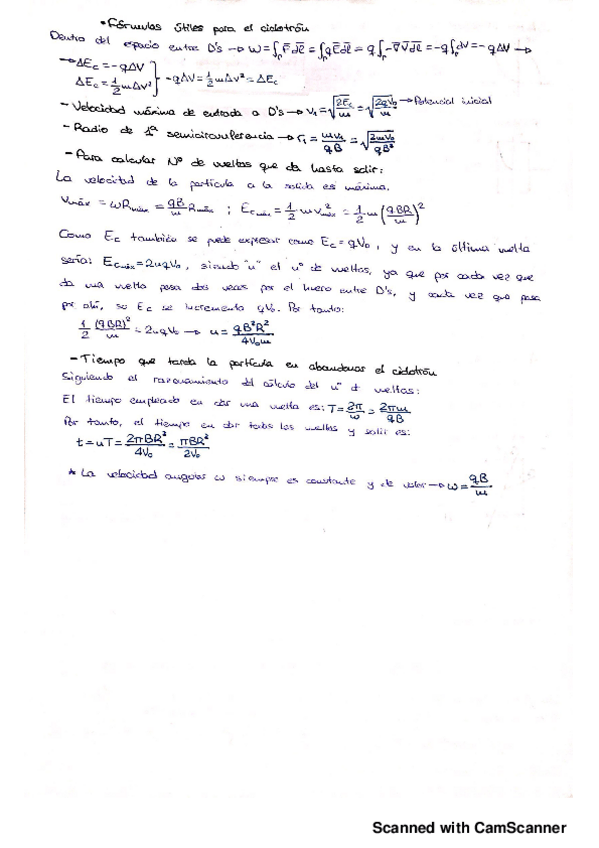 • Fórmulas útiles para el ciclotrón
Dentro del espacio entre D's → W = ∫ₚ F̄ dl̄ = ∫ₚ qĒ dl̄ = q∫ₚ -∇̄V dl̄ = -q∫ₚ dV = -qΔV →
→ ΔEc = -qΔV
ΔEc = 1/2 mΔv² } -qΔV = 1/2 mΔv² = ΔEc
- Velocidad máxima de entrada a D's → V₁ = √(2Ec/m) = √(2qV₀/m) → Potencial inicial
- Radio de 1ª semicircunferencia → r₁ = mv₁/qB = √(2mV₀/qB²)
- Para calcular Nº de vueltas que da hasta salir:
La velocidad de la partícula a la salida es máxima.
Vmáx = ωRmáx = qB/m Rmáx ; Ecmáx = 1/2 m v²máx = 1/2 m (qBR/m)²
Como Ec también se puede expresar como Ec = qV₀, y en la última vuelta
sería: Ecmáx = 2nqV₀, siendo "n" el nº de vueltas, ya que por cada vez que
da una vuelta pasa dos veces por el hueco entre D's, y cada vez que pasa
por ahí, su Ec se incrementa qV₀. Por tanto:
1/2 (qBR)²/m = 2nqV₀ → n = qB²R²/4V₀m
- Tiempo que tarda la partícula en abandonar el ciclotrón
Siguiendo el razonamiento del cálculo del nº d vueltas:
El tiempo empleado en dar una vuelta es: T = 2π/ω = 2πm/qB
Por tanto, el tiempo en dar todas las vueltas y salir es:
t = nT = 2πBR²/4V₀ = πBR²/2V₀
* La velocidad angular ω siempre es constante y de valor → ω = qB/m
Scanned with CamScanner